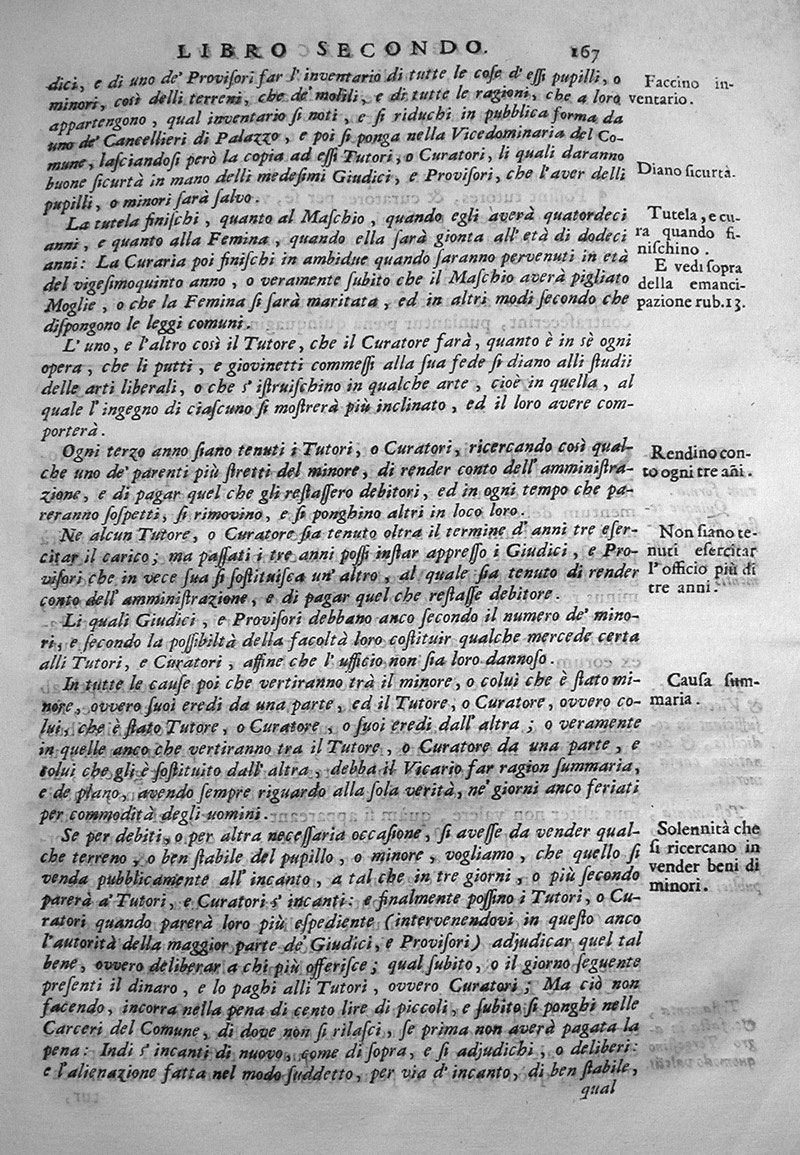 LIBRO SECONDO. 167
dici, e di uno de' Proviſori far l' inventario di tutte le coſe d' eſſi pupilli, o
minori, così delli terreni, che de' mobili, e di tutte le ragioni, che a loro
appartengono, qual inventario ſi noti, e ſi riduchi in pubblica forma da
uno de' Cancellieri di Palazzo, e poi ſi ponga nella Vicedominaria del Co-
mune, laſciandoſi però la copia ad eſſi Tutori, o Curatori, li quali daranno
buone ſicurtà in mano delli medeſimi Giudici, e Proviſori, che l'aver delli
pupilli, o minori ſarà ſalvo.
La tutela finiſchi, quanto al Maſchio, quando egli averà quatordeci
anni, e quanto alla Femina, quando ella ſarà gionta all' età di dodeci
anni: La Curaria poi finiſchi in ambidue quando ſaranno pervenuti in età
del vigeſimoquinto anno, o veramente ſubito che il Maſchio averà pigliato
Moglie, o che la Femina ſi ſarà maritata, ed in altri modi ſecondo che
diſpongono le leggi comuni.
L' uno, e l'altro così il Tutore, che il Curatore farà, quanto è in sè ogni
opera, che li putti, e giovinetti commeſſi alla ſua fede ſi diano alli ſtudii
delle arti liberali, o che s' iſtruiſchino in qualche arte, cioè in quella, al
quale l' ingegno di ciaſcuno ſi moſtrerà più inclinato, ed il loro avere com-
porterà.
Ogni terzo anno ſiano tenuti i Tutori, o Curatori, ricercando così qual-
che uno de' parenti più ſtretti del minore, di render conto dell' amminiſtra-
zione, e di pagar quel che gli reſtaſſero debitori, ed in ogni tempo che pa-
reranno ſoſpetti, ſi rimovino, e ſi ponghino altri in loco loro.
Ne alcun Tutore, o Curatore ſia tenuto oltra il termine d' anni tre eſer-
citar il carico; ma paſſati i tre anni poſſi inſtar appreſſo i Giudici, e Pro-
viſori che in vece ſua ſi ſoſtituiſca un' altro, al quale ſia tenuto di render
conto dell' amminiſtrazione, e di pagar quel che reſtaſſe debitore.
Li quali Giudici, e Proviſori debbano anco ſecondo il numero de' mino-
ri, e ſecondo la poſſibiltà della facoltà loro coſtituir qualche mercede certa
alli Tutori, e Curatori, affine che l' ufficio non ſia loro dannoſo.
In tutte le cauſe poi che vertiranno trà il minore, o colui che è ſtato mi-
nore, ovvero ſuoi eredi da una parte, ed il Tutore, o Curatore, ovvero co-
lui, che è ſtato Tutore, o Curatore, o ſuoi eredi dall' altra; o veramente
in quelle anco che vertiranno tra il Tutore, o Curatore da una parte, e
colui che gli è ſoſtituito dall' altra, debba il Vicario far ragion ſummaria,
e de plano, avendo ſempre riguardo alla ſola verità, ne' giorni anco feriati
per commodità degli uomini.
Se per debiti, o per altra neceſſaria occaſione, ſi aveſſe da vender qual-
che terreno, o ben ſtabile del pupillo, o minore, vogliamo, che quello ſi
venda pubblicamente all' incanto, a tal che in tre giorni, o più ſecondo
parerà a' Tutori, e Curatori s' incanti: e finalmente poſſino i Tutori, o Cu-
ratori quando parerà loro più eſpediente (intervenendovi in queſto anco
l'autorità della maggior parte de' Giudici, e Proviſori) adjudicar quel tal
bene, ovvero deliberar a chi più offeriſce; qual ſubito, o il giorno ſeguente
preſenti il dinaro, e lo paghi alli Tutori, ovvero Curatori; Ma ciò non
facendo, incorra nella pena di cento lire di piccoli, e ſubito ſi ponghi nelle
Carceri del Comune, di dove non ſi rilaſci, ſe prima non averà pagata la
pena: Indi s' incanti di nuovo, come di ſopra, e ſi adjudichi, o deliberi:
e l'alienazione fatta nel modo ſuddetto, per via d' incanto, di ben ſtabile,
qual
Faccino in-
ventario.
Diano ſicurtà.
Tutela, e cu-
ra quando fi-
niſchino.
E vedi ſopra
della emanci-
pazione rub. 13.
Rendino con-
to ogni tre añi.
Non ſiano te-
nuti eſercitar
l'officio più di
tre anni.
Cauſa ſum-
maria.
Solennità che
ſi ricercano in
vender beni di
minori.